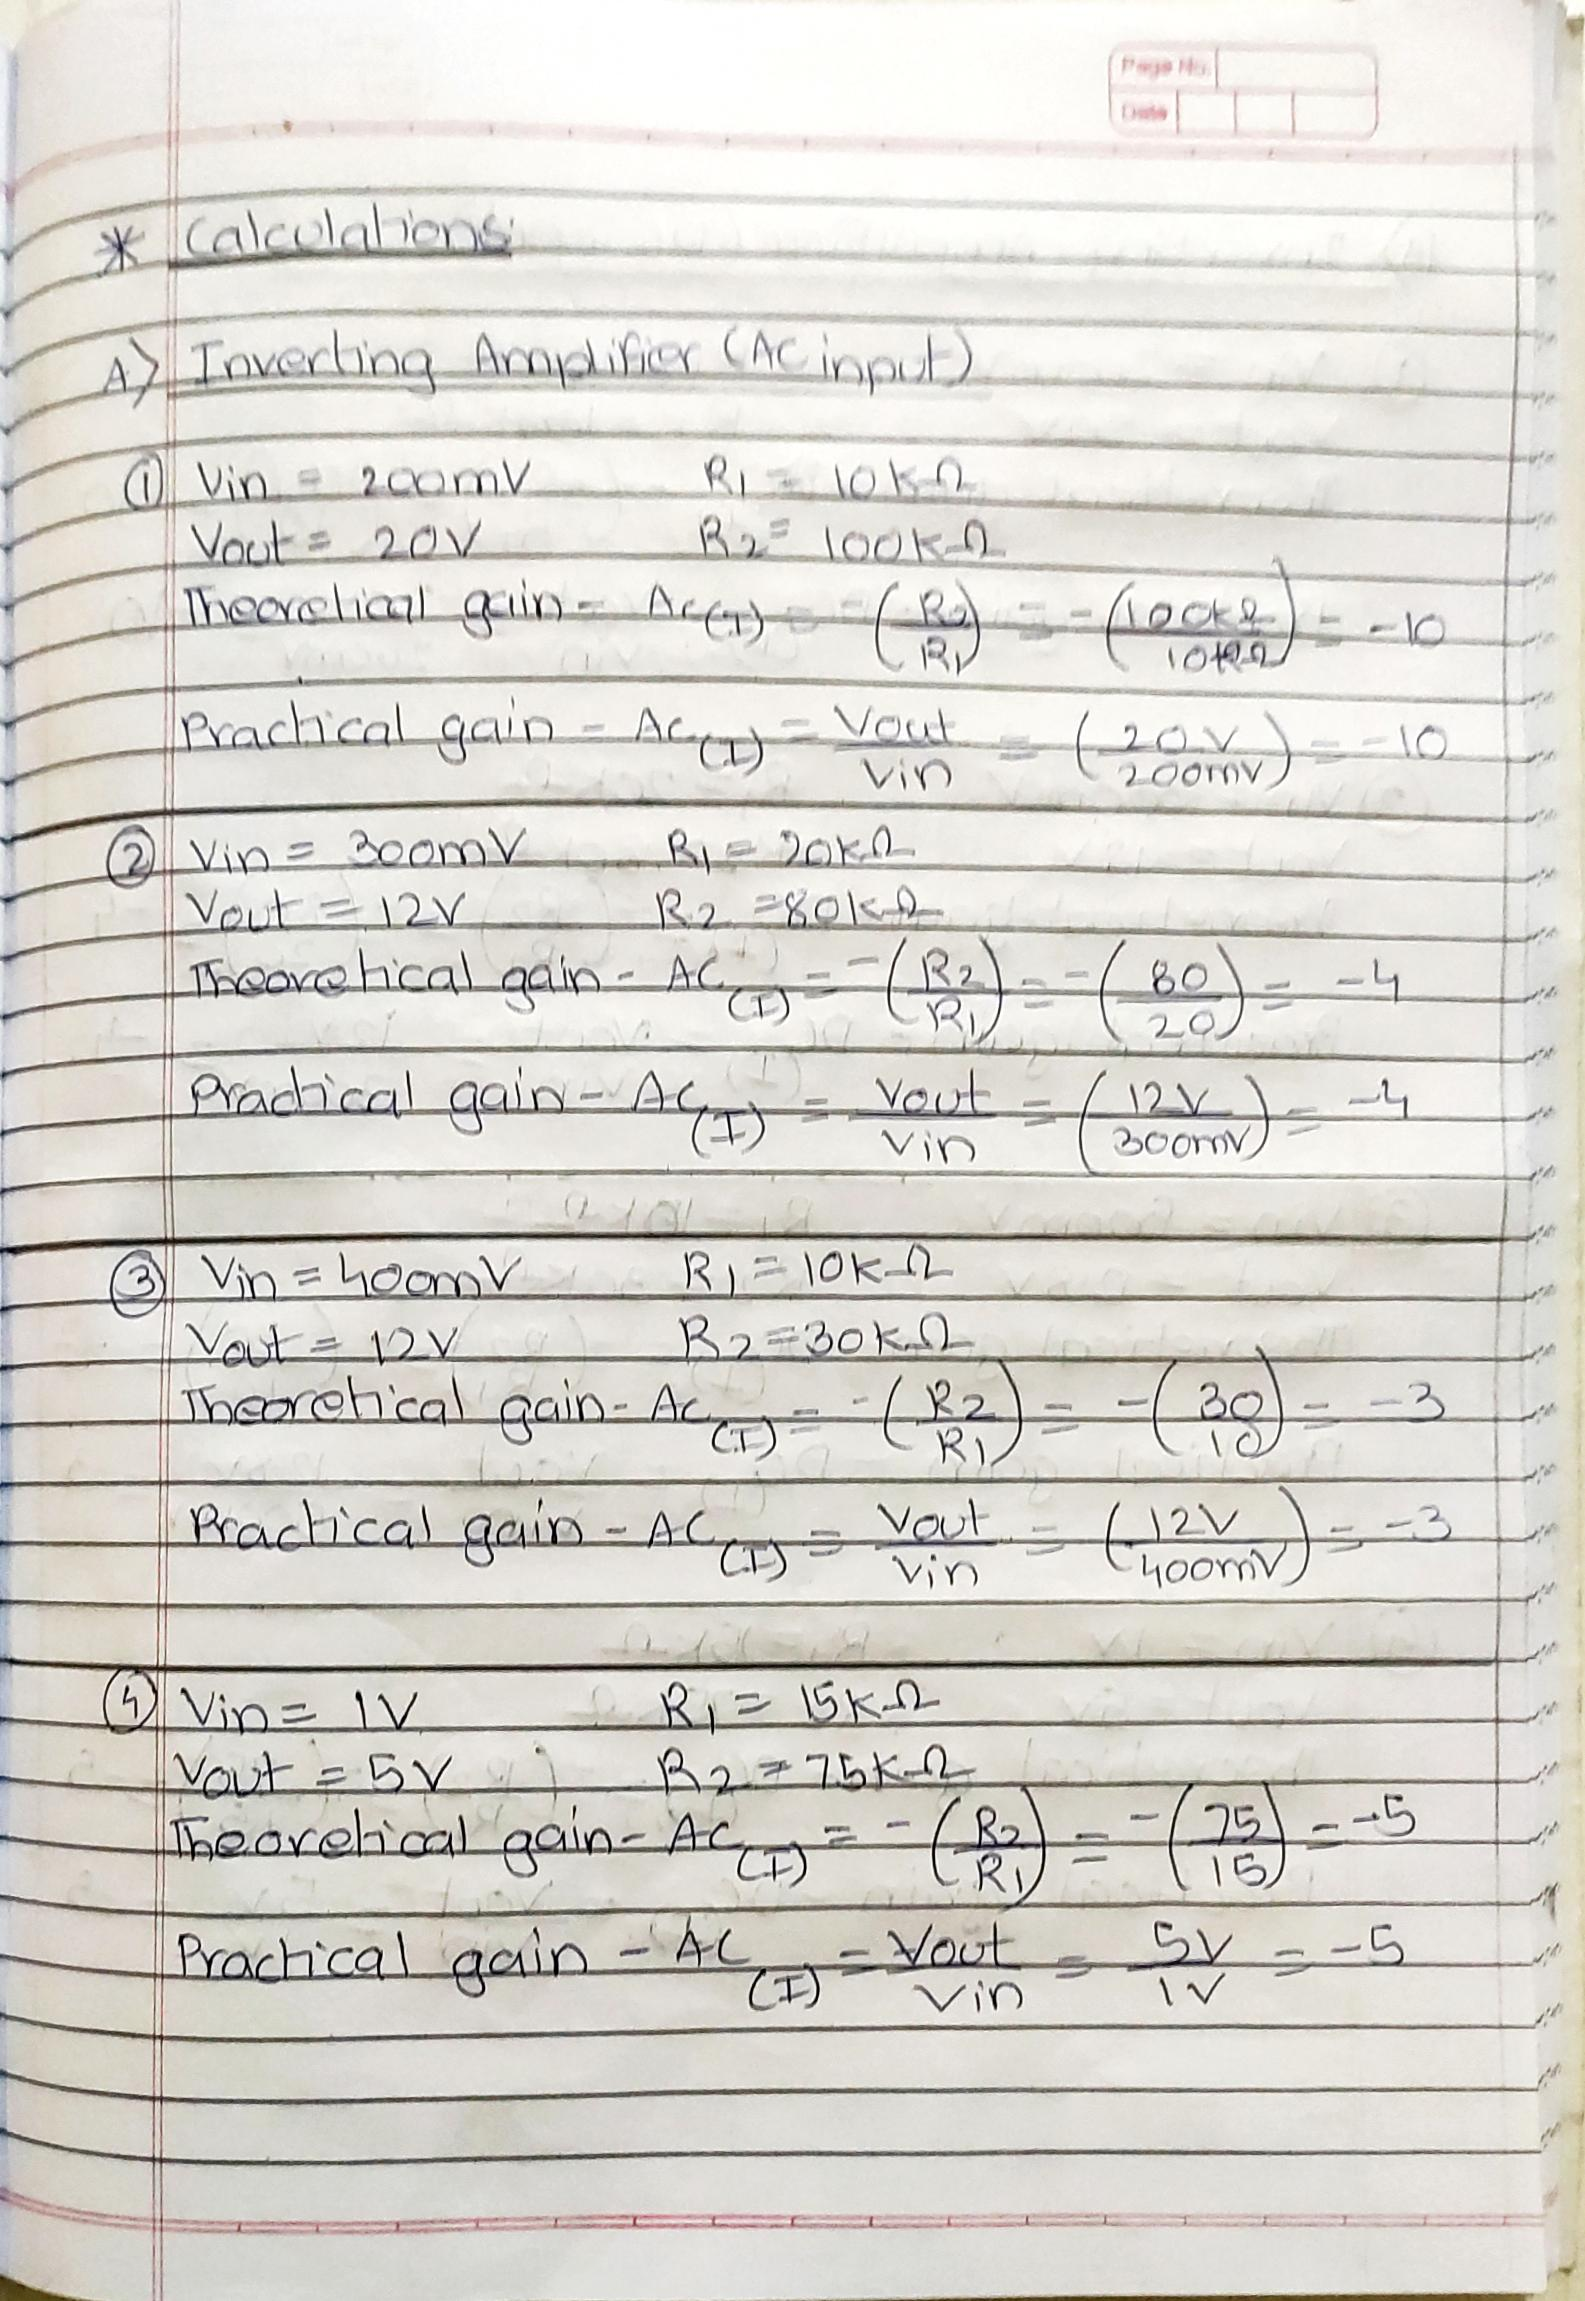 Page No.
Date
* Calculations:
A) Inverting Amplifier (AC input)
① Vin = 200mV R1 = 10kΩ
Vout = 20V R2 = 100kΩ
Theoretical gain - AC(I) = -(R2/R1) = -(100kΩ/10kΩ) = -10
Practical gain - AC(I) = Vout/Vin = (20V/200mV) = -10
② Vin = 300mV R1 = 20kΩ
Vout = 12V R2 = 80kΩ
Theoretical gain - AC(I) = -(R2/R1) = -(80/20) = -4
Practical gain - AC(I) = Vout/Vin = (12V/300mV) = -4
③ Vin = 400mV R1 = 10kΩ
Vout = 12V R2 = 30kΩ
Theoretical gain - AC(I) = -(R2/R1) = -(30/10) = -3
Practical gain - AC(I) = Vout/Vin = (12V/400mV) = -3
④ Vin = 1V R1 = 15kΩ
Vout = 5V R2 = 75kΩ
Theoretical gain - AC(I) = -(R2/R1) = -(75/15) = -5
Practical gain - AC(I) = Vout/Vin = 5V/1V = -5